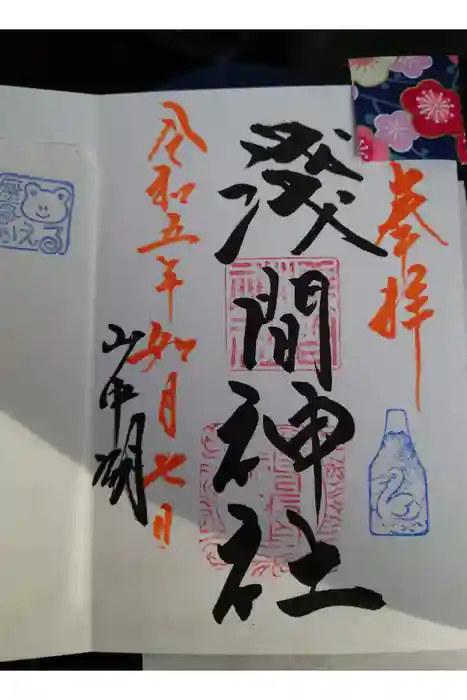 奉拝
淺間神社
令和五年如月七日
山中湖